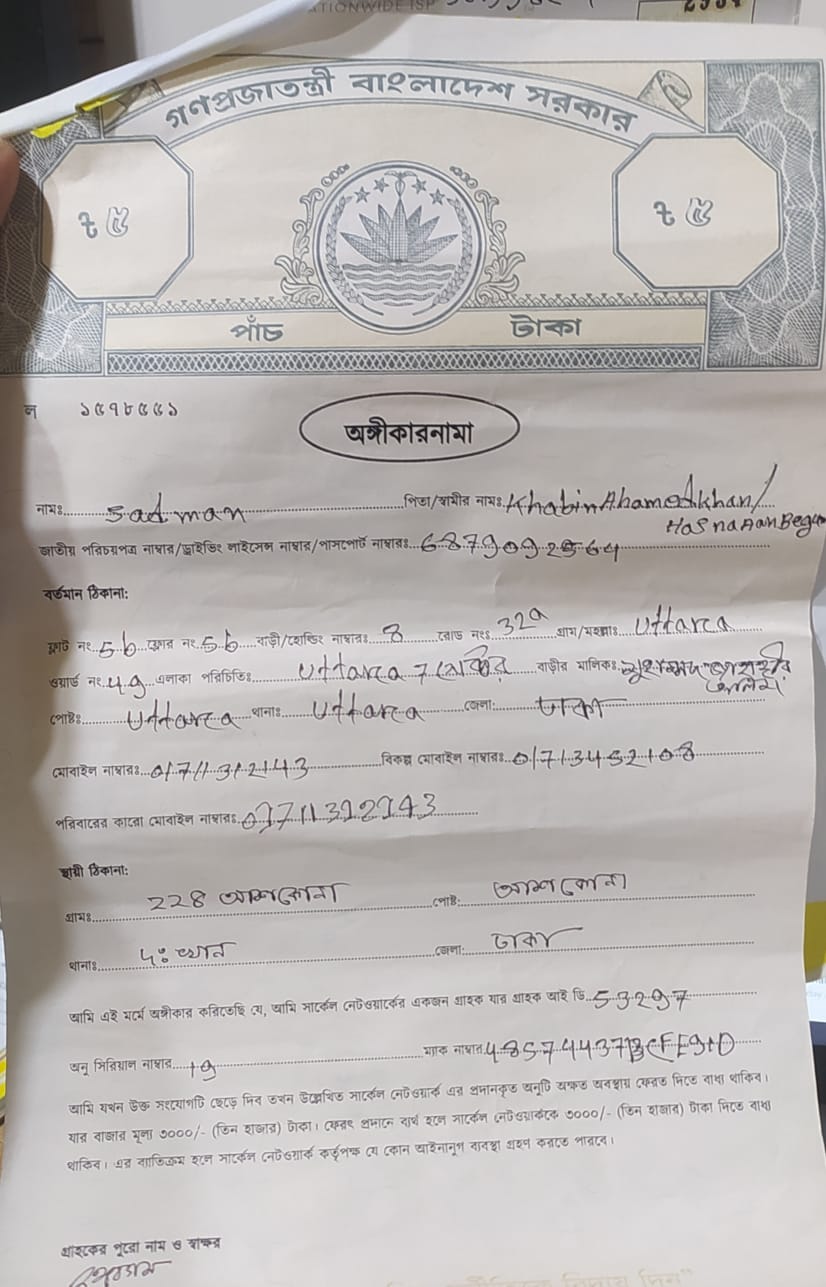 ATIONWIDE ISP
গণপ্রজাতন্ত্রী বাংলাদেশ সরকার
৳ ৫ ৳ ৫
পাঁচ টাকা
ল ১৫৭৮৫৫১
অঙ্গীকারনামা
নামঃ Sadman পিতা/স্বামীর নামঃ Khabin Ahamed khan/
HaSnaAan Begum
জাতীয় পরিচয়পত্র নাম্বার/ড্রাইভিং লাইসেন্স নাম্বার/পাসপোর্ট নাম্বারঃ 6879092564
বর্তমান ঠিকানা:
ফ্লাট নং 5b ফ্লোর নং 5b বাড়ী/হোল্ডিং নাম্বারঃ 8 রোড নংঃ 32a গ্রাম/মহল্লাঃ Uttarca
ওয়ার্ড নং 49 এলাকা পরিচিতিঃ Uttarca 7 সেক্টর বাড়ীর মালিকঃ
পোষ্টঃ Uttarca থানাঃ Uttarca জেলা: ঢাকা
মোবাইল নাম্বারঃ 01711312143 বিকল্প মোবাইল নাম্বারঃ 01713452108
পরিবারের কারো মোবাইল নাম্বারঃ
স্থায়ী ঠিকানা:
গ্রামঃ 228 আশকোনা পোষ্ট: আশকোনা
থানাঃ দঃ খান জেলা: ঢাকা
আমি এই মর্মে অঙ্গীকার করিতেছি যে, আমি সার্কেল নেটওয়ার্কের একজন গ্রাহক যার গ্রাহক আই ডি 53297
অনু সিরিয়াল নাম্বার 19 ম্যাক নাম্বার
আমি যখন উক্ত সংযোগটি ছেড়ে দিব তখন উল্লেখিত সার্কেল নেটওয়ার্ক এর প্রদানকৃত অনুটি অক্ষত অবস্থায় ফেরত দিতে বাধ্য থাকিব।
যার বাজার মূল্য ৩০০০/- (তিন হাজার) টাকা। ফেরৎ প্রদানে ব্যর্থ হলে সার্কেল নেটওয়ার্ককে ৩০০০/- (তিন হাজার) টাকা দিতে বাধ্য
থাকিব। এর ব্যতিক্রম হলে সার্কেল নেটওয়ার্ক কর্তৃপক্ষ যে কোন আইনানুগ ব্যবস্থা গ্রহণ করতে পারবে।
গ্রাহকের পুরো নাম ও স্বাক্ষর